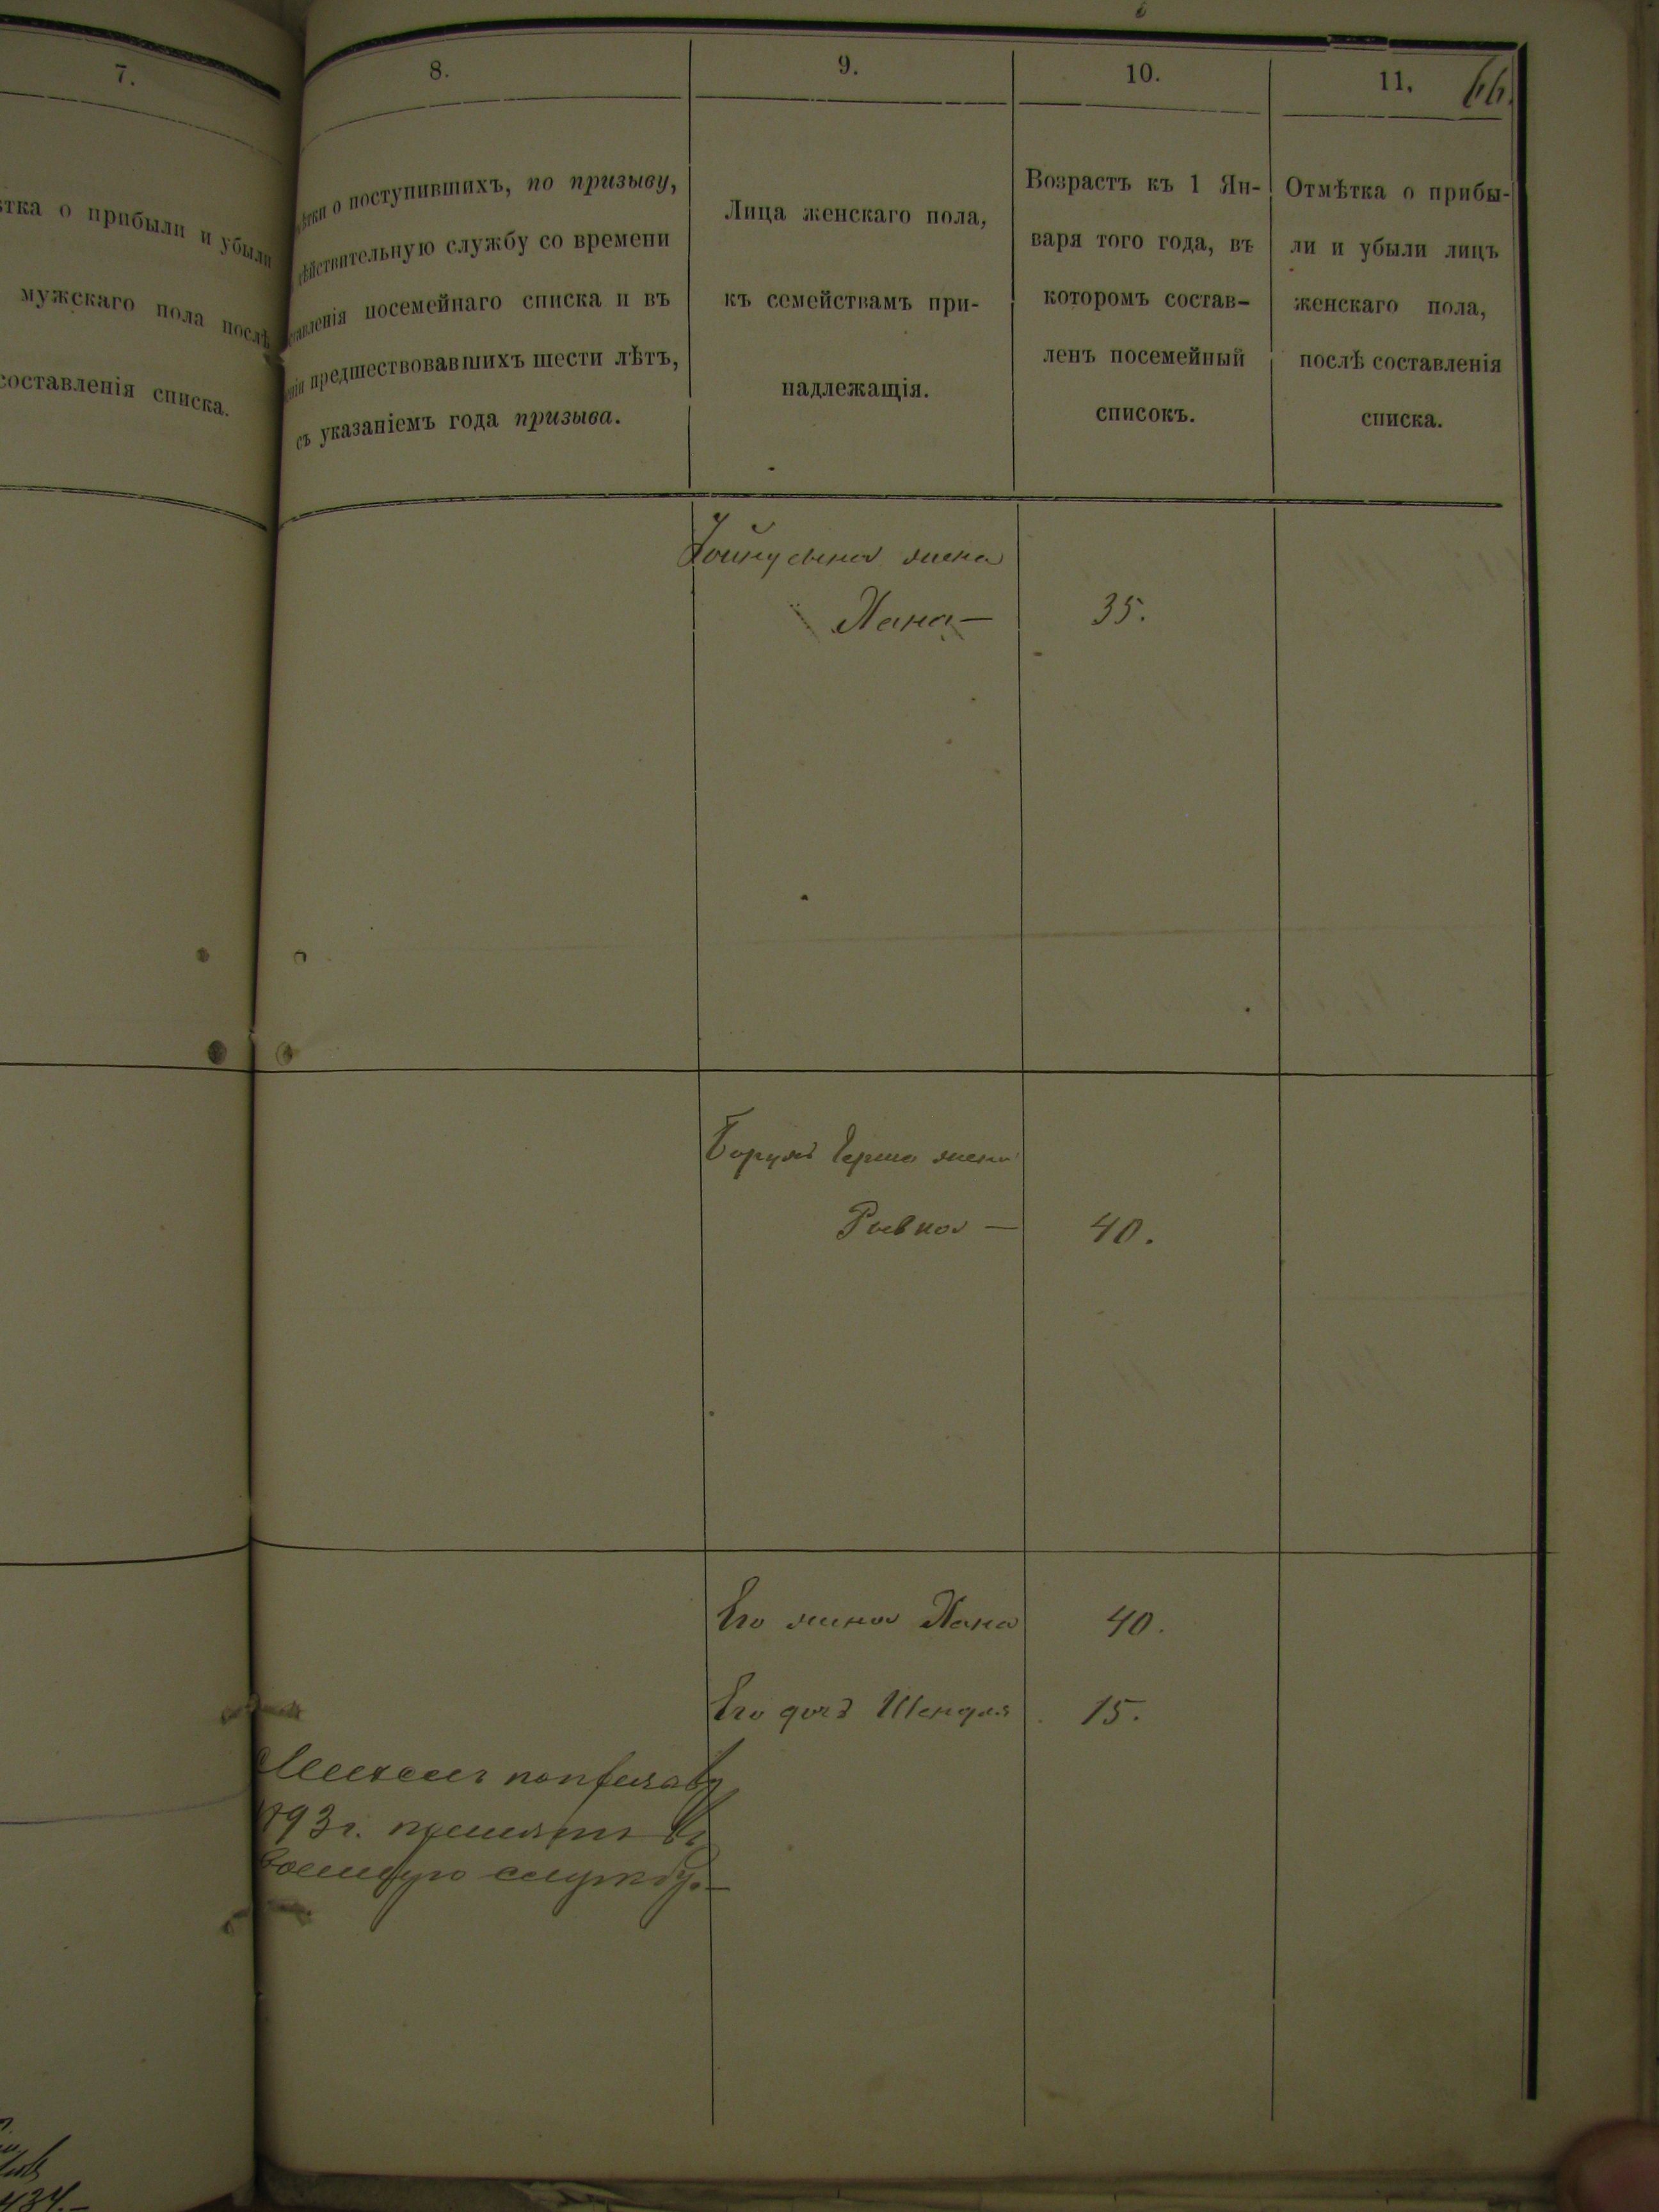 7.
8.
9.
10.
11.
66.
тка о прибыли и убыли
мужскаго пола послѣ
составленія списка.
ѣтки о поступившихъ, по призыву,
ѣйствительную службу со времени
ставленія посемейнаго списка и въ
еніи предшествовавшихъ шести лѣтъ,
съ указаніемъ года призыва.
Лица женскаго пола,
къ семействамъ при-
надлежащія.
Возрастъ къ 1 Ян-
варя того года, въ
которомъ состав-
ленъ посемейный
списокъ.
Отмѣтка о прибы-
ли и убыли лицъ
женскаго пола,
послѣ составленія
списка.
жена
Хана —
35.
Борухъ Герша жена
Ривка —
40.
Его жена Хана
40.
Его дочь Шендля
15.
по призыву
1893 г. принятъ въ
военную службу. —
434. —